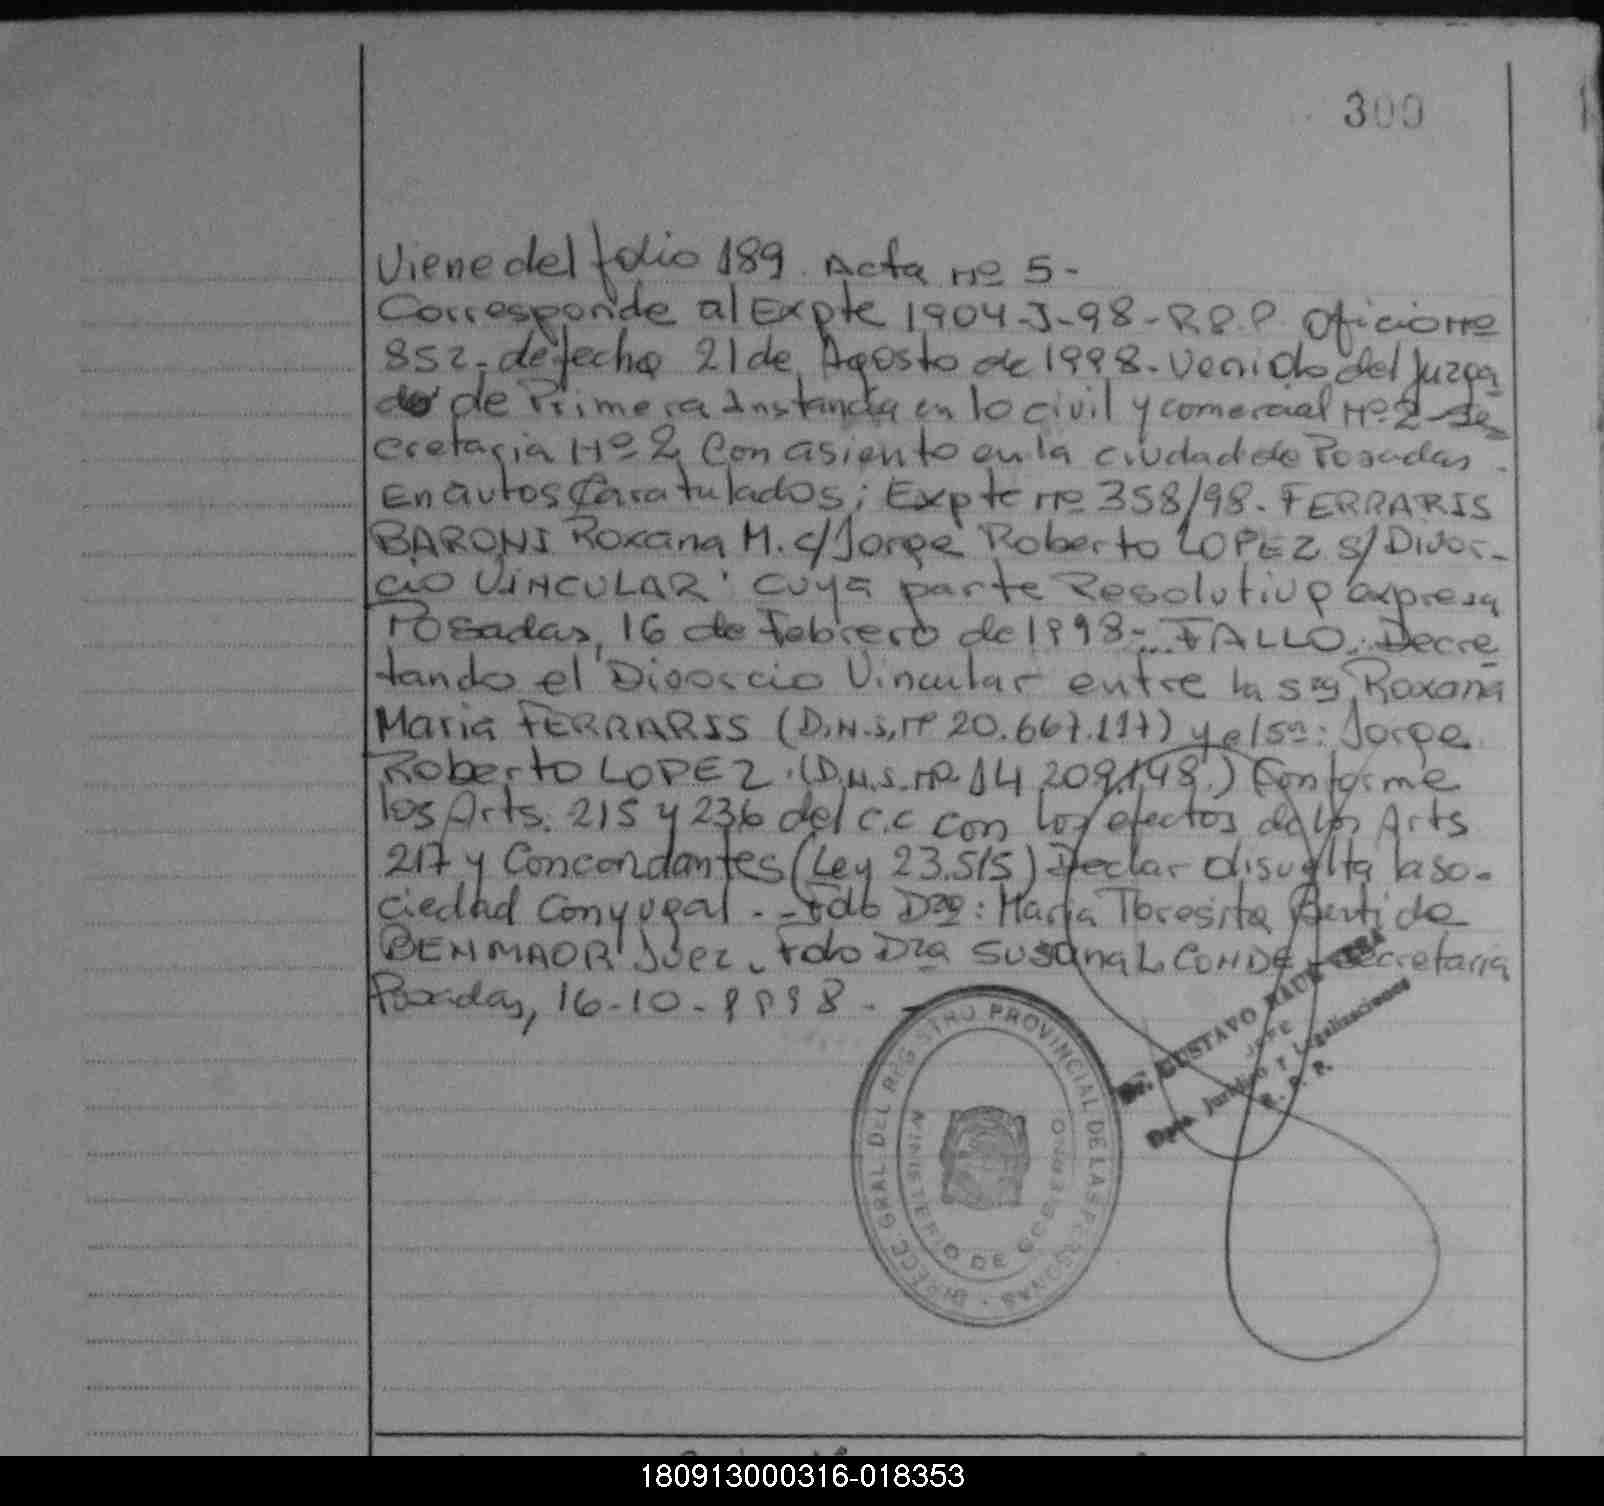 300
Viene del folio 189. Acta Nº 5-
Corresponde al Expte 1904-J-98-R.P.P. Oficio Nº
852- de fecha 21 de Agosto de 1998- Venido del Juzga
do de Primera Instancia en lo civil y comercial Nº 2- Se
cretaria Nº 2, Con asiento en la ciudad de Posadas.
En autos Caratulados; Expte Nº 358/98- FERRARIS
BARONI Roxana M. c/ Jorge Roberto LOPEZ s/ Divor-
cio VINCULAR' Cuya parte Resolutiva expresa
Posadas, 16 de Febrero de 1998-... FALLO. Decre
tando el Divorcio Vincular entre la sra Roxana
Maria FERRARIS (D.N.I, Nº 20.667.117) y el Sr: Jorge
Roberto LOPEZ. (D.N.I. Nº 14.209.148.) Conforme
los Arts. 215 y 236 del C.C con los efectos de los Arts
217 y Concordantes (Ley 23.515) Declar disuelta la so-
ciedad Conyugal.- Fdo Dra: Maria Teresita Benti de
BENMAOR Juez. Fdo Dra SUSANA L. CONDE- Secretaria
Posadas, 16-10-1998-
Dr. GUSTAVO RAUL
JEFE
Dpto. Jurídico y Legalizaciones
R. P. P.
DIRECC GRAL DEL REGISTRO PROVINCIAL DE LAS PERSONAS
MINISTERIO DE GOBIERNO
180913000316-018353